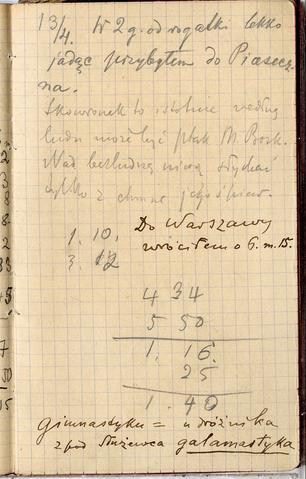 13/4. W 2 g. od rogatki lekko
jadąc przybyłem do Piasecz-
na.
Skowronek to istotnie według
ludu może być ptak M. Bosk.
Nad bezludną niwą słychać
tylko z chmur jego śpiew.
1. 10.
3. 12
Do Warszawy
wróciłem o 6. m. 15.
4 34
5 50
1. 16.
25
1. 40
gimnastyku = u dróżnika
z pod Służewca galamastyka